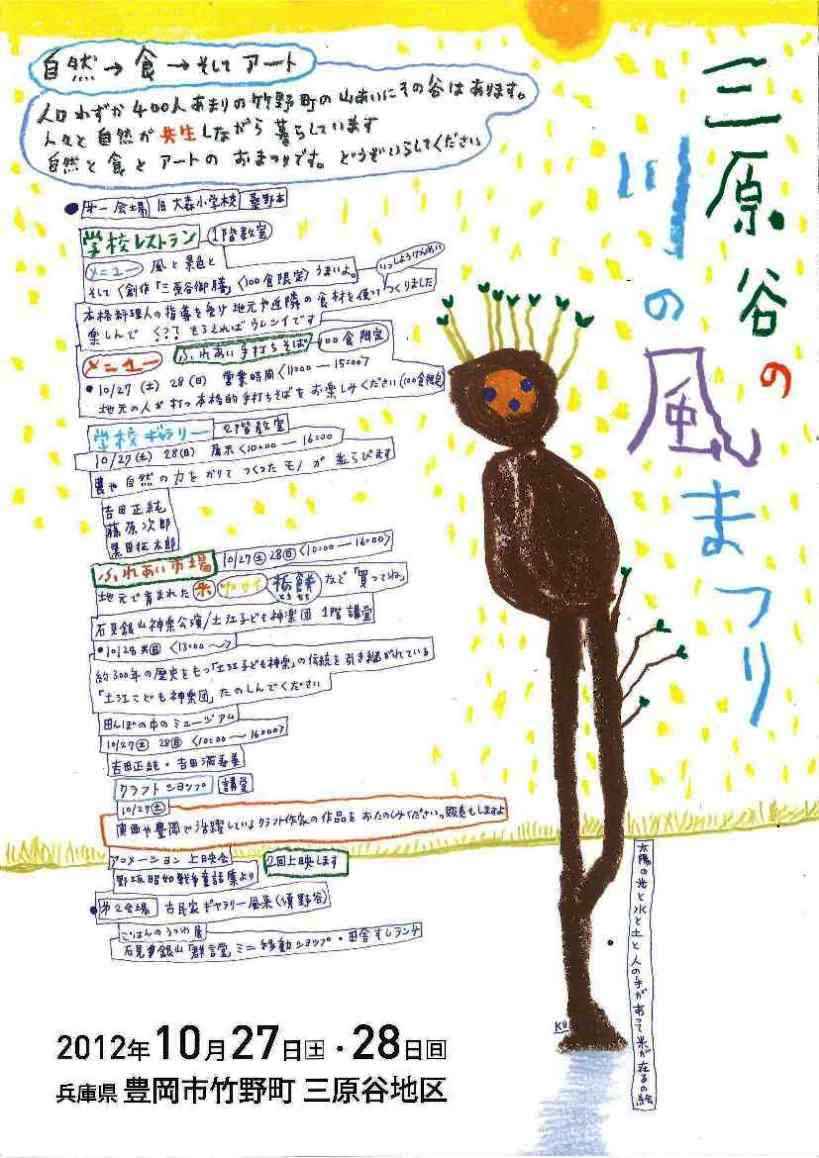 三原谷の
川の風まつり
自然→食→そしてアート
人口わずか400人あまりの竹野町の山あいにその谷はあります。
人々と自然が共生しながら暮らしています
自然と食とアートのおまつりです。どうぞいらしてください
●第一会場 旧大森小学校
学校レストラン 1階教室
メニュー 風と景色と
そして〈創作「三原谷御膳」〈100食限定〉うまいよ。
いっしょうけんめい
本格料理人の指導を受け地元や近隣の食材を使ってつくりました
楽しんで
もらえればウレシイです
メニュー ふれあい手打ちそば 100食限定
●10/27(土) 28(日) 営業時間〈11:00―15:00〉
地元の人が打つ本格的手打ちそばをお楽しみください(100食限定)
学校ギャラリー 2階教室
10/27(土) 28(日) 展示〈10:00―16:00
農や自然の力をかりてつくったモノが並らびます
吉田正純
藤原次郎
黒田征太郎
ふれあい市場 10/27土 28日〈10:00―16:00〉
地元で育まれた 米 ヤサイ 栃餅 など「買ってね」
とちもち
石見銀山神楽公演/土江子ども神楽団 1階講堂
●10/28 日〈13:00～〉
約300年の歴史をもつ「土江子ども神楽」の伝統を引き継がれている
「土江こども神楽団」たのしんでください
田んぼの中のミュージアム
10/27土 28日〈10:00―16:00〉
吉田正純・吉田満寿美
クラフトショップ 講堂
10/27土
但馬や豊岡で活躍しているクラフト作家の作品をおたのしみください。販売もしますよ
アニメーション上映会 2回上映します
野坂昭如戦争童話集より
●第2会場 古民家ギャラリー風来(須野谷)
ごはんのうつわ展
石見銀山「群言堂」ミニ移動ショップ・田舎すしランチ
太陽の光と水と土と人の手があって米が在るの絵
2012年10月27日土・28日日
兵庫県 豊岡市竹野町 三原谷地区